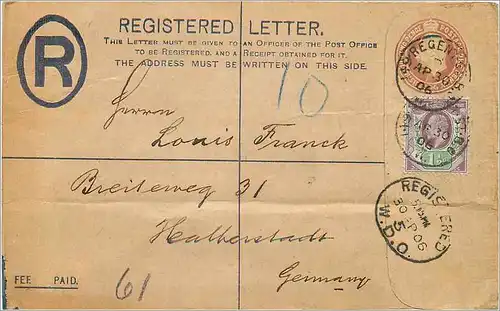 REGISTERED LETTER.
THIS LETTER MUST BE GIVEN TO AN OFFICER OF THE POST OFFICE
TO BE REGISTERED, AND A RECEIPT OBTAINED FOR IT.
THE ADDRESS MUST BE WRITTEN ON THIS SIDE.
R
10
Herrn
Louis Franck
Breiteweg 31
Halberstadt
Germany
FEE PAID.
61
AP 30
06
REGISTERED
30 AP 06
5
W.D.O.